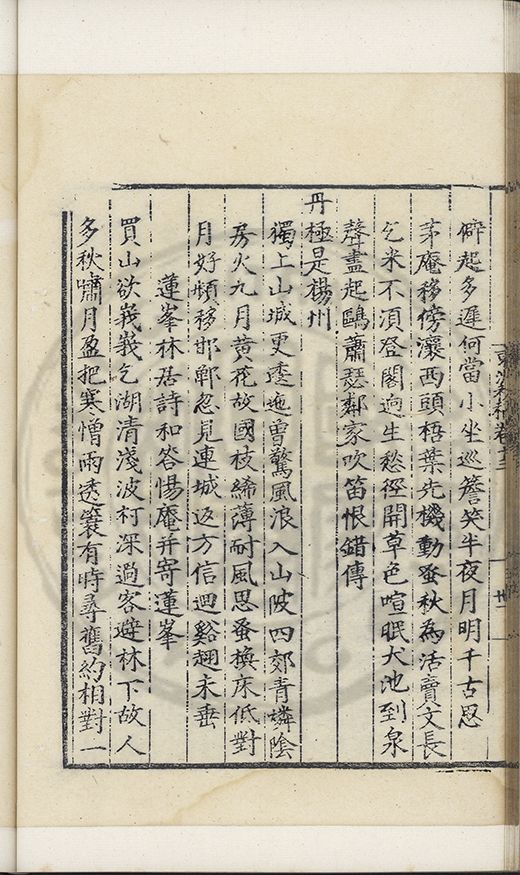 僻起多遲何當小坐巡簷笑半夜月明千古思
茅庵移傍瀼西頭梧葉先機動蚤秋為活賣文長
乞米不湏登閣逈生愁徑開草色喧眠犬池到泉
聲盡起鷗蕭瑟鄰家吹笛恨錯傳
丹極是楊州
獨上山城更逶迤曾驚風浪入山陂四郊青燐陰
房火九月黄花故國枝絺薄耐風思蚤換床低對
月好頻移邯鄲忽見連城返方信迴谿翅未垂
蓮峯林居詩和答惕庵并寄蓮峯
買山欲峩峩乞湖清淺波柯深過客避林下故人
多秋嘯月盈把寒憎雨透簑有時尋舊約相對一